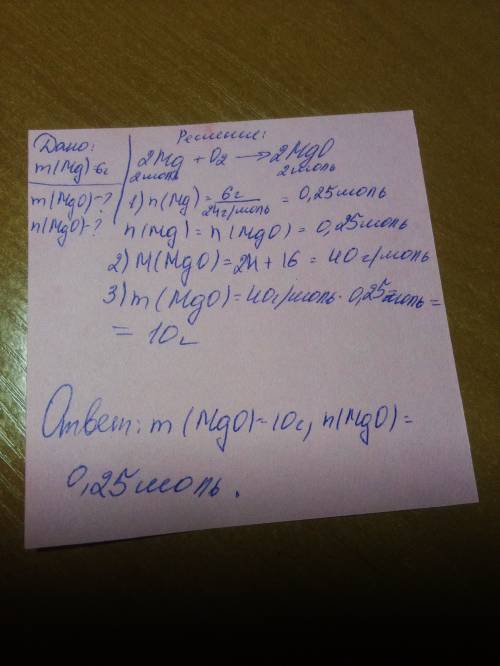 Дано:
m(Mg)-6г
m(MgO)-?
n(MgO)-?
Решение:
2Mg + O2 → 2MgO
2моль 2моль
1) n(Mg) = 6г / 24г/моль = 0,25моль
n(Mg) = n(MgO) = 0,25моль
2) M(MgO) = 24 + 16 = 40г/моль
3) m(MgO) = 40г/моль · 0,25моль =
= 10г
Ответ: m(MgO)-10г, n(MgO) =
0,25моль.